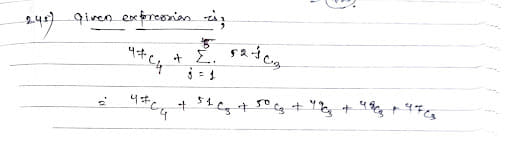 245) Given expression is;
⁴⁷C₄ + Σ⁵ⱼ₌₁ ⁵²⁻ʲC₃
= ⁴⁷C₄ + ⁵¹C₃ + ⁵⁰C₃ + ⁴⁹C₃ + ⁴⁸C₃ + ⁴⁷C₃